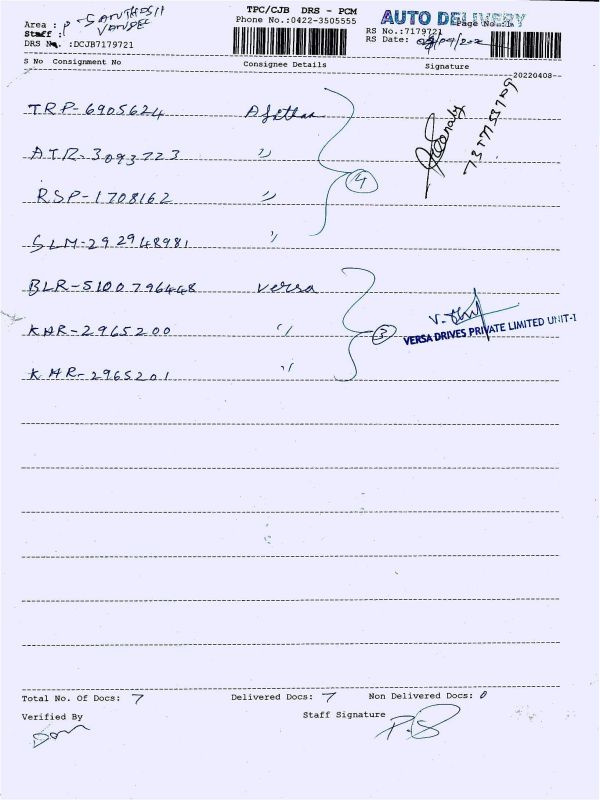 TPC/CJB DRS - PCM
AUTO DELIVERY
Area : P - SANTHOSH
Phone No.:0422-3505555
Page No.:1
Staff :
RS No.:7179721
DRS No. :DCJB7179721
RS Date:
S No Consignment No Consignee Details Signature
--20220408--
TRP-6905624
ATR-3093723 "
RSP-1708162 "
④
SLM-292948981 "
BLR-5100796448 Versa
KAR-2965200 "
③
VERSA DRIVES PRIVATE LIMITED UNIT-I
KAR-2965201 "
Total No. Of Docs: 7 Delivered Docs: 7 Non Delivered Docs: 0
Verified By Staff Signature
P.S